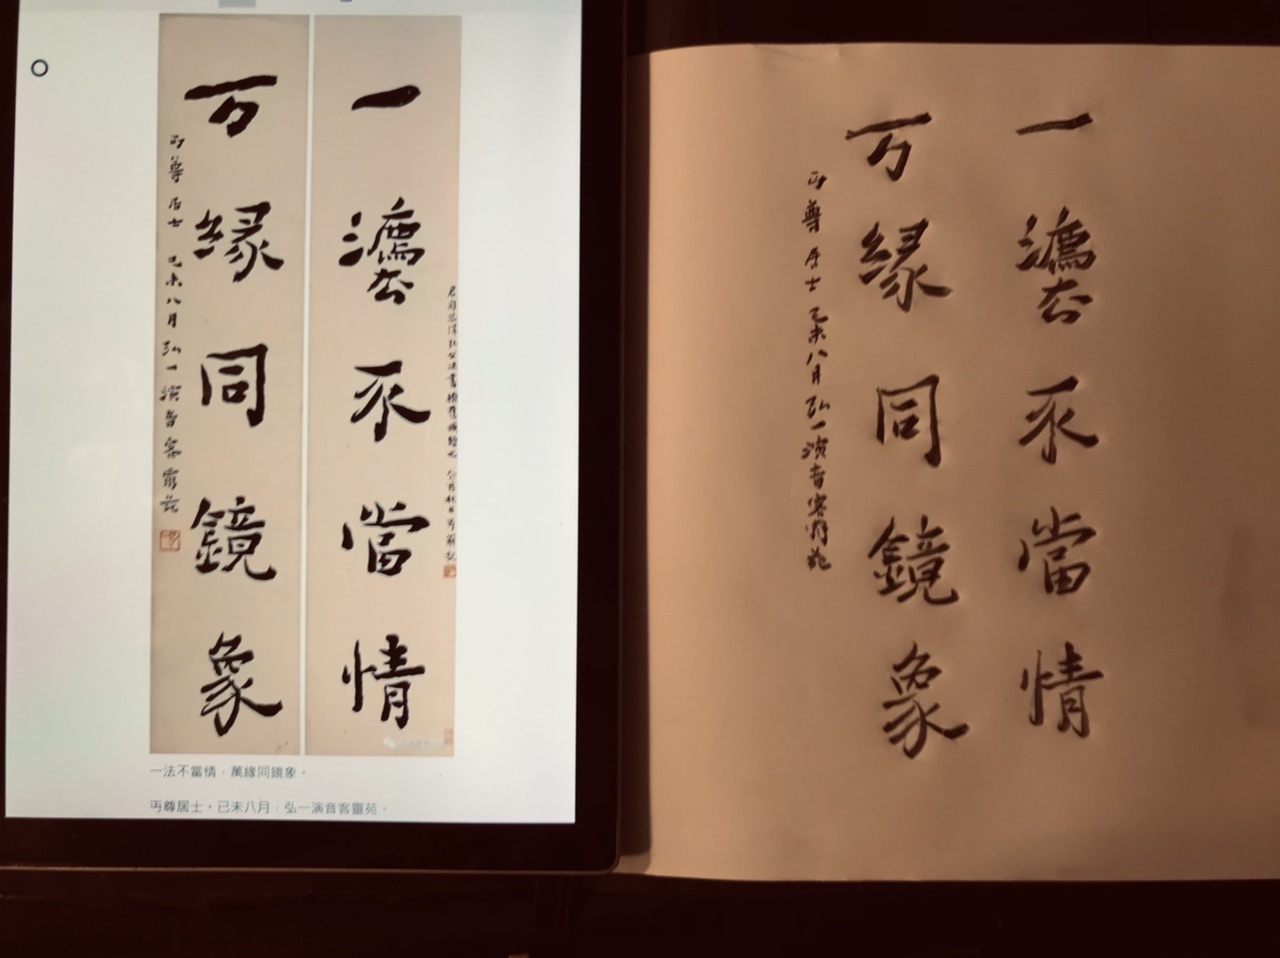 一灋不當情
万緣同鏡象
丏尊居士 己未八月 弘一演音客靈苑
一法不當情，萬緣同鏡象。
丏尊居士。己未八月，弘一演音客靈苑。
一灋不當情
万緣同鏡象
丏尊居士 己未八月 弘一演音客靈苑